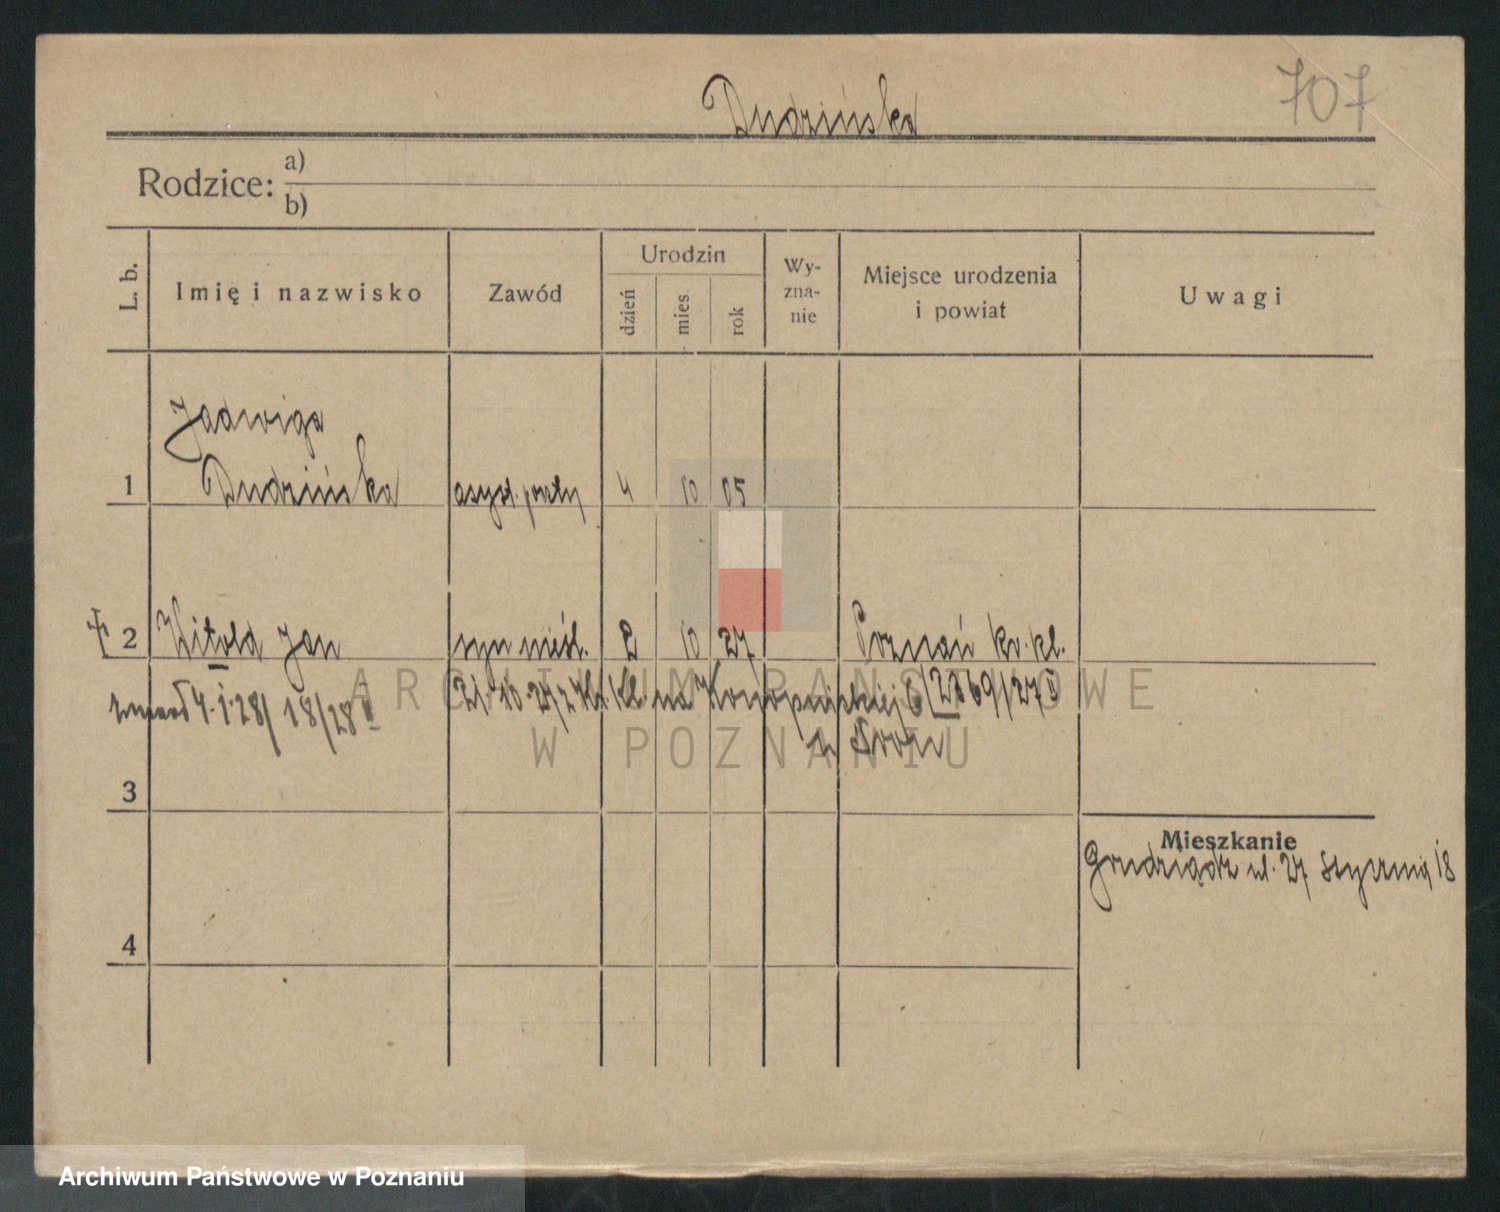 707
Dudzińska
Rodzice: a)
b)
L. b.
Imię i nazwisko
Zawód
Urodzin
dzień
mies
rok
Wy-
zna-
nie
Miejsce urodzenia
i powiat
Uwagi
Jadwiga
1 Dudzińska asyst. poczty 4 10 05
2 Witold Jan syn nieśl. 2 10 27 Poznań kr. kl.
zmarł 4.1.28/ 18/28 I 21.10.27 z Kr. Kl. na Konopnickiej 6 /2369/27 I
3
Mieszkanie
Grudziądz ul. 27 Stycznia 18
4
ARCHIWUM PAŃSTWOWE
W POZNANIU
Archiwum Państwowe w Poznaniu